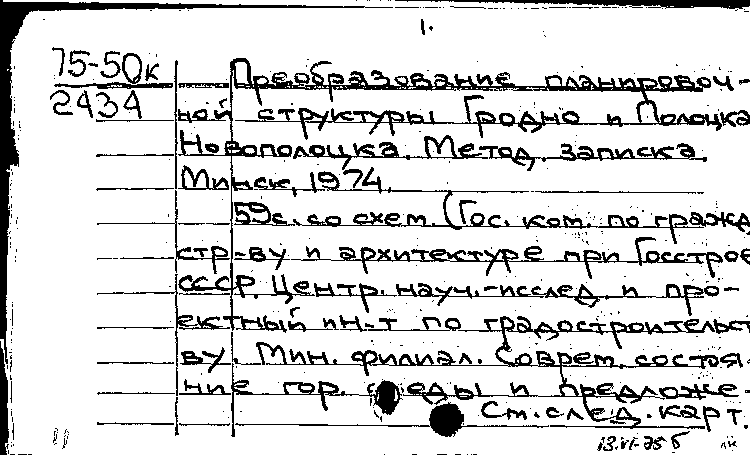 1.
75-50к
2434
Преобразование планировоч-
ной структуры Гродно и Полоцка
Новополоцка. Метод. записка.
Минск, 1974.
59с. со схем. (Гос. ком. по гражд
стр-ву и архитектуре при Госстрое
СССР. Центр. науч.-исслед. и про-
ектный ин-т по градостроительст
ву. Мин. филиал. Соврем. состоя-
ние гор. среды и предложе-
См. след. карт.
13.VI-75 Б